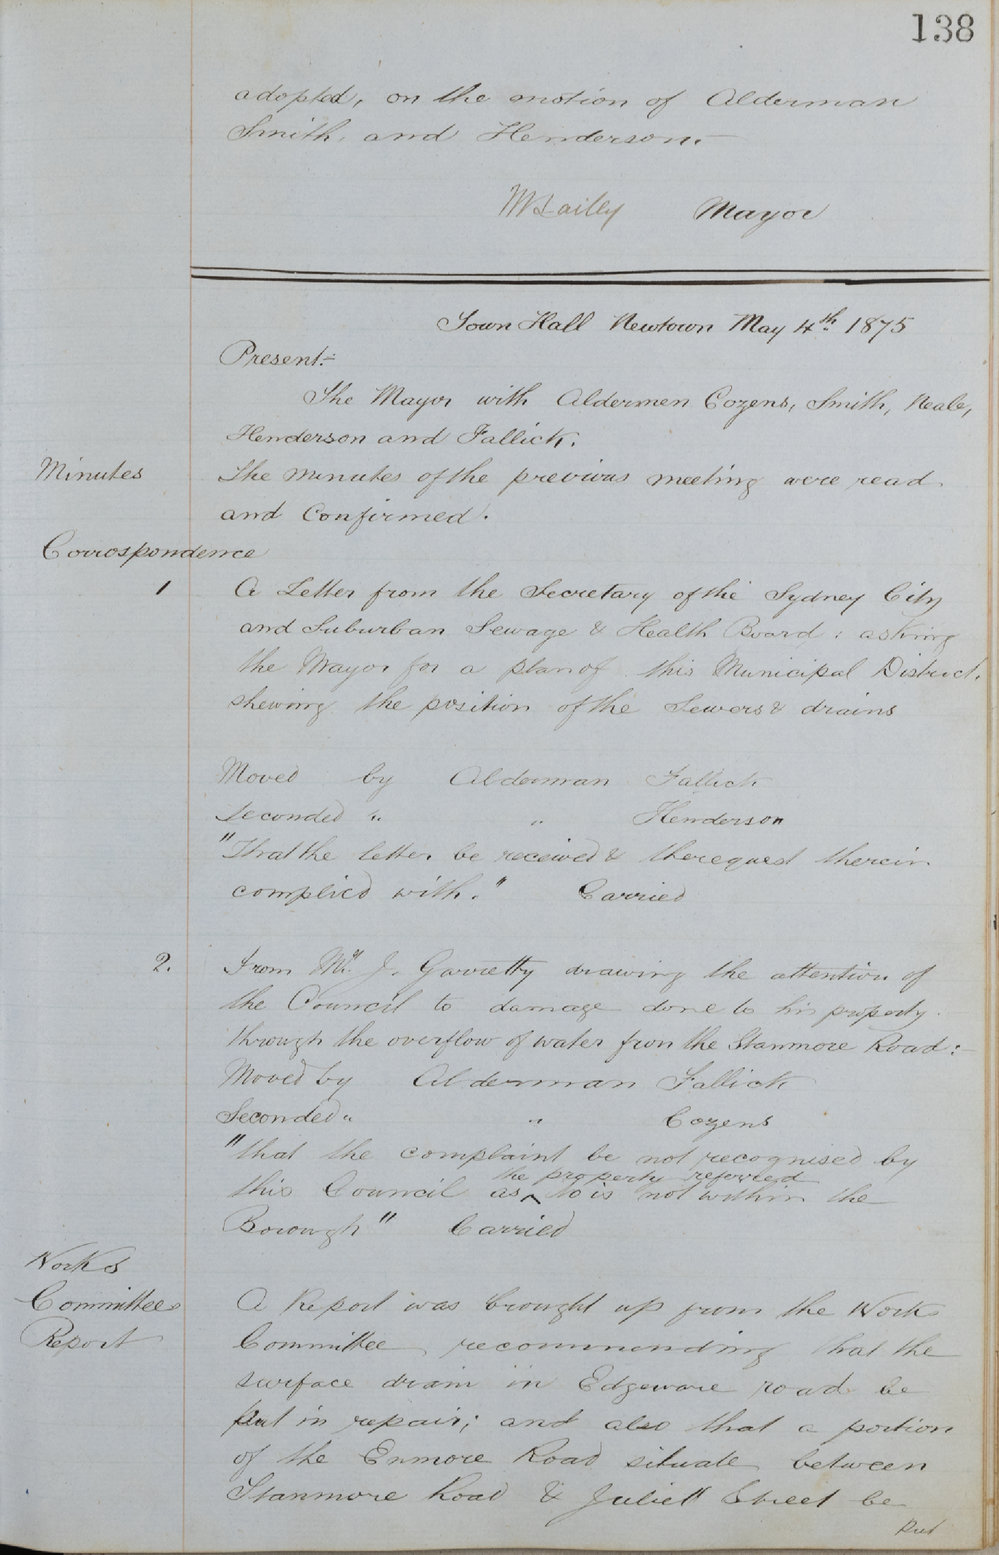 138
adopted, on the motion of Alderman
Smith, and Henderson.
Mayor
Town Hall Newtown May 4th 1875
Present:-
The Mayor with Aldermen Cozens, Smith, Neale,
Henderson and Fallick.
Minutes
The minutes of the previous meeting were read
and Confirmed.
Corrospondence
1 A Letter from the Secretary of the Sydney City
and Suburban Sewage & Health Board: asking
the Mayor for a plan of this Municipal District,
shewing the position of the Sewers & drains
Moved by Alderman Fallick
Seconded " " Henderson
"That the letter be received & the request therein
complied with." Carried
2. From Mr. J. Garretty drawing the attention of
the Council to damage done to his property
through the overflow of water from the Stanmore Road:-
Moved by Alderman Fallick
Seconded " " Cozens
"that the complaint be not recognised by
the property referred
this Council as ^ to is not within the
Borough" Carried
Works
Committees
Report
A Report was brought up from the Work
Committee recommending that the
surface drain in Edgeware road be
put in repair; and also that a portion
of the Enmore Road situate between
Stanmore Road & Juliett Street be
put